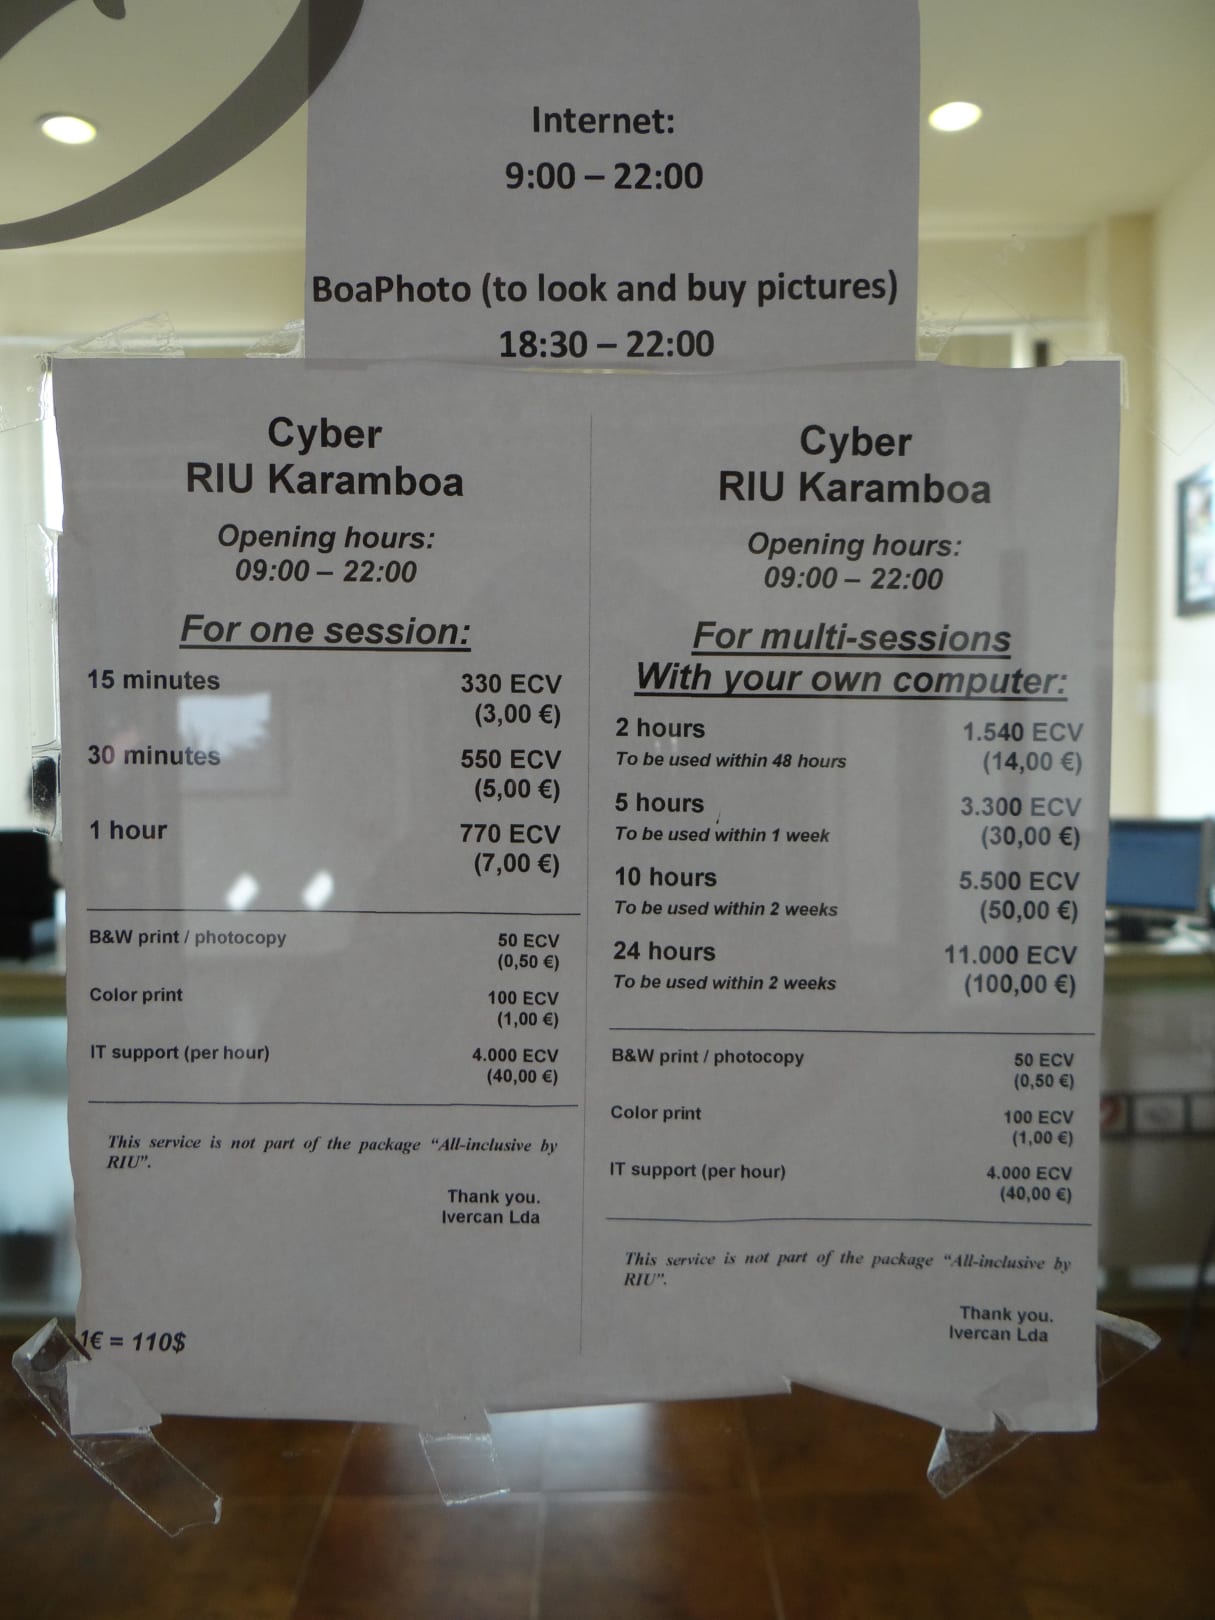 Internet:
9:00 – 22:00
BoaPhoto (to look and buy pictures)
18:30 – 22:00
Cyber
RIU Karamboa
Opening hours:
09:00 – 22:00
For one session:
15 minutes 330 ECV
(3,00 €)
30 minutes 550 ECV
(5,00 €)
1 hour 770 ECV
(7,00 €)
B&W print / photocopy 50 ECV
(0,50 €)
Color print 100 ECV
(1,00 €)
IT support (per hour) 4.000 ECV
(40,00 €)
This service is not part of the package “All-inclusive by
RIU”.
Thank you.
Ivercan Lda
1€ = 110$
Cyber
RIU Karamboa
Opening hours:
09:00 – 22:00
For multi-sessions
With your own computer:
2 hours 1.540 ECV
To be used within 48 hours (14,00 €)
5 hours 3.300 ECV
To be used within 1 week (30,00 €)
10 hours 5.500 ECV
To be used within 2 weeks (50,00 €)
24 hours 11.000 ECV
To be used within 2 weeks (100,00 €)
B&W print / photocopy 50 ECV
(0,50 €)
Color print 100 ECV
(1,00 €)
IT support (per hour) 4.000 ECV
(40,00 €)
This service is not part of the package “All-inclusive by
RIU”.
Thank you.
Ivercan Lda